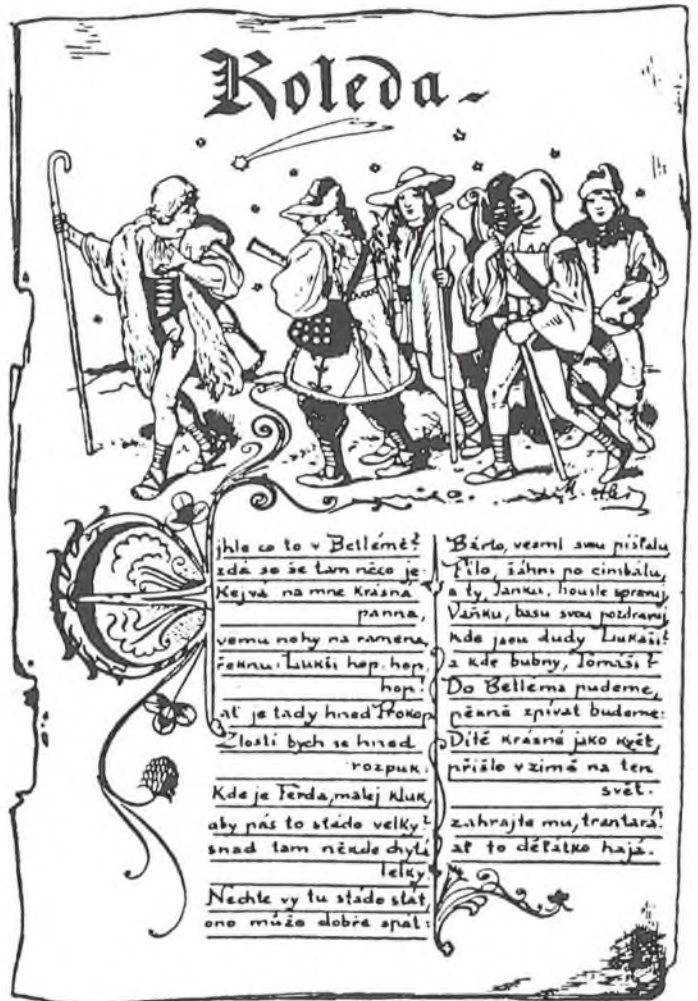 Koleda
Ejhle co to v Betlémě?
zdá se že tam něco je
Kejvá na mne krásná
panna,
vemu nohy na ramena
řeknu: Lukši hop, hop,
hop!
ať je tady hned Prokop
Zlostí bych se hned
rozpuk.
Kde je Ferda, malej kluk,
aby pás to stádo velký?
snad tam někde chytá
lelky.
Nechte vy tu stádo stát,
ono může dobře spát:
Bárto, vezmi svou píšťalu
Fílo, šáhni po cimbálu,
a ty, Janku, housle spravuj
Vaňku, basu svou pozdravuj
kde jsou dudy Lukáši?
a kde bubny, Tomáši?
Do Betléma pudeme,
pěkně zpívat budeme:
Dítě krásné jako květ,
přišlo v zimě na ten
svět.
zahrajte mu, trantará!
ať to děťátko hajá.